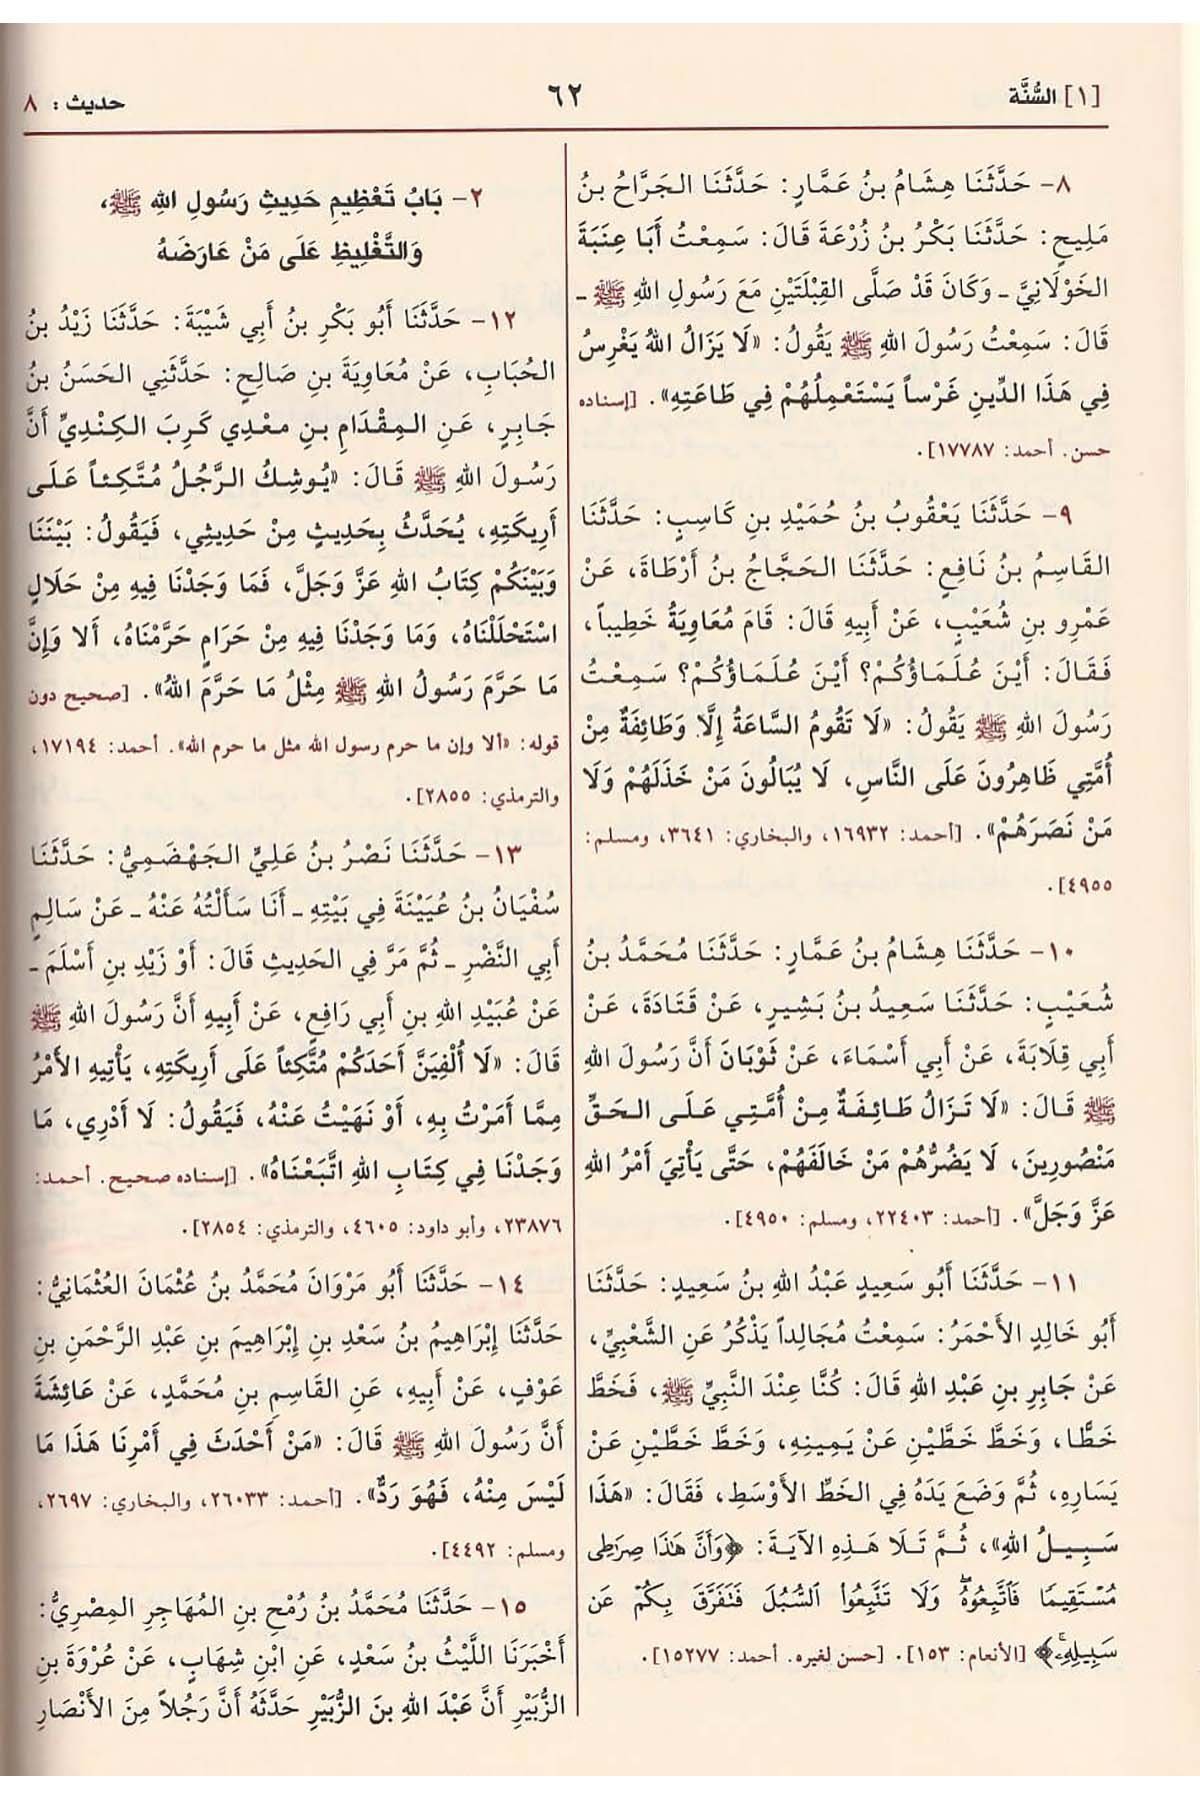 [١] السُّنَّة
٦٢
حديث : ٨
٨- حَدَّثَنَا هِشَامُ بنُ عَمَّارٍ: حَدَّثَنَا الجَرَّاحُ بنُ
مَلِيحٍ: حَدَّثَنَا بَكْرُ بنُ زُرْعَةَ قَالَ: سَمِعْتُ أَبَا عِنَبَةَ
الخَوْلَانِيَّ ـ وَكَانَ قَدْ صَلَّى القِبْلَتَيْنِ مَعَ رَسُولِ اللهِ ﷺ ـ
قَالَ: سَمِعْتُ رَسُولَ اللهِ ﷺ يَقُولُ: «لَا يَزَالُ اللهُ يَغْرِسُ
فِي هَذَا الدِّينِ غَرْساً يَسْتَعْمِلُهُمْ فِي طَاعَتِهِ». [إسناده
حسن. أحمد: ١٧٧٨٧].
٩- حَدَّثَنَا يَعْقُوبُ بنُ حُمَيْدِ بنِ كَاسِبٍ: حَدَّثَنَا
القَاسِمُ بنُ نَافِعٍ: حَدَّثَنَا الحَجَّاجُ بنُ أَرْطَاةَ، عَنْ
عَمْرِو بنِ شُعَيْبٍ، عَنْ أَبِيهِ قَالَ: قَامَ مُعَاوِيَةُ خَطِيباً،
فَقَالَ: أَيْنَ عُلَمَاؤُكُمْ؟ أَيْنَ عُلَمَاؤُكُمْ؟ سَمِعْتُ
رَسُولَ اللهِ ﷺ يَقُولُ: «لَا تَقُومُ السَّاعَةُ إِلَّا وَطَائِفَةٌ مِنْ
أُمَّتِي ظَاهِرُونَ عَلَى النَّاسِ، لَا يُبَالُونَ مَنْ خَذَلَهُمْ وَلَا
مَنْ نَصَرَهُمْ». [أحمد: ١٦٩٣٢، والبخاري: ٣٦٤١، ومسلم:
٤٩٥٥].
١٠- حَدَّثَنَا هِشَامُ بنُ عَمَّارٍ: حَدَّثَنَا مُحَمَّدُ بنُ
شُعَيْبٍ: حَدَّثَنَا سَعِيدُ بنُ بَشِيرٍ، عَنْ قَتَادَةَ، عَنْ
أَبِي قِلَابَةَ، عَنْ أَبِي أَسْمَاءَ، عَنْ ثَوْبَانَ أَنَّ رَسُولَ اللهِ
ﷺ قَالَ: «لَا تَزَالُ طَائِفَةٌ مِنْ أُمَّتِي عَلَى الحَقِّ
مَنْصُورِينَ، لَا يَضُرُّهُمْ مَنْ خَالَفَهُمْ، حَتَّى يَأْتِيَ أَمْرُ اللهِ
عَزَّ وَجَلَّ». [أحمد: ٢٢٤٠٣، ومسلم: ٤٩٥٠].
١١- حَدَّثَنَا أَبُو سَعِيدٍ عَبْدُ اللهِ بنُ سَعِيدٍ: حَدَّثَنَا
أَبُو خَالِدٍ الأَحْمَرُ: سَمِعْتُ مُجَالِداً يَذْكُرُ عَنِ الشَّعْبِيِّ،
عَنْ جَابِرِ بنِ عَبْدِ اللهِ قَالَ: كُنَّا عِنْدَ النَّبِيِّ ﷺ، فَخَطَّ
خَطًّا، وَخَطَّ خَطَّيْنِ عَنْ يَمِينِهِ، وَخَطَّ خَطَّيْنِ عَنْ
يَسَارِهِ، ثُمَّ وَضَعَ يَدَهُ فِي الخَطِّ الأَوْسَطِ، فَقَالَ: «هَذَا
سَبِيلُ اللهِ»، ثُمَّ تَلَا هَذِهِ الآيَةَ: ﴿وَأَنَّ هَٰذَا صِرَٰطِى
مُسْتَقِيمًا فَٱتَّبِعُوهُۖ وَلَا تَتَّبِعُوا۟ ٱلسُّبُلَ فَتَفَرَّقَ بِكُمْ عَن
سَبِيلِهِۦۚ﴾ [الأنعام: ١٥٣]. [حسن لغيره. أحمد: ١٥٢٧٧].
٢- بَابُ تَعْظِيمِ حَدِيثِ رَسُولِ اللهِ ﷺ،
وَالتَّغْلِيظِ عَلَى مَنْ عَارَضَهُ
١٢- حَدَّثَنَا أَبُو بَكْرِ بنُ أَبِي شَيْبَةَ: حَدَّثَنَا زَيْدُ بنُ
الحُبَابِ، عَنْ مُعَاوِيَةَ بنِ صَالِحٍ: حَدَّثَنِي الحَسَنُ بنُ
جَابِرٍ، عَنِ المِقْدَامِ بنِ مَعْدِي كَرِبَ الكِنْدِيِّ أَنَّ
رَسُولَ اللهِ ﷺ قَالَ: «يُوشِكُ الرَّجُلُ مُتَّكِئاً عَلَى
أَرِيكَتِهِ، يُحَدَّثُ بِحَدِيثٍ مِنْ حَدِيثِي، فَيَقُولُ: بَيْنَنَا
وَبَيْنَكُمْ كِتَابُ اللهِ عَزَّ وَجَلَّ، فَمَا وَجَدْنَا فِيهِ مِنْ حَلَالٍ
اسْتَحْلَلْنَاهُ، وَمَا وَجَدْنَا فِيهِ مِنْ حَرَامٍ حَرَّمْنَاهُ، أَلَا وَإِنَّ
مَا حَرَّمَ رَسُولُ اللهِ ﷺ مِثْلُ مَا حَرَّمَ اللهُ». [صحيح دون
قوله: «ألا وإن ما حرم رسول الله مثل ما حرم الله». أحمد: ١٧١٩٤،
والترمذي: ٢٨٥٥].
١٣- حَدَّثَنَا نَصْرُ بنُ عَلِيٍّ الجَهْضَمِيُّ: حَدَّثَنَا
سُفْيَانُ بنُ عُيَيْنَةَ فِي بَيْتِهِ ـ أَنَا سَأَلْتُهُ عَنْهُ ـ عَنْ سَالِمٍ
أَبِي النَّضْرِ ـ ثُمَّ مَرَّ فِي الحَدِيثِ قَالَ: أَوْ زَيْدِ بنِ أَسْلَمَ ـ
عَنْ عُبَيْدِ اللهِ بنِ أَبِي رَافِعٍ، عَنْ أَبِيهِ أَنَّ رَسُولَ اللهِ ﷺ
قَالَ: «لَا أُلْفِيَنَّ أَحَدَكُمْ مُتَّكِئاً عَلَى أَرِيكَتِهِ، يَأْتِيهِ الأَمْرُ
مِمَّا أَمَرْتُ بِهِ، أَوْ نَهَيْتُ عَنْهُ، فَيَقُولُ: لَا أَدْرِي، مَا
وَجَدْنَا فِي كِتَابِ اللهِ اتَّبَعْنَاهُ». [إسناده صحيح. أحمد:
٢٣٨٧٦، وأبو داود: ٤٦٠٥، والترمذي: ٢٨٥٤].
١٤- حَدَّثَنَا أَبُو مَرْوَانَ مُحَمَّدُ بنُ عُثْمَانَ العُثْمَانِيُّ:
حَدَّثَنَا إِبْرَاهِيمُ بنُ سَعْدِ بنِ إِبْرَاهِيمَ بنِ عَبْدِ الرَّحْمَنِ بنِ
عَوْفٍ، عَنْ أَبِيهِ، عَنِ القَاسِمِ بنِ مُحَمَّدٍ، عَنْ عَائِشَةَ
أَنَّ رَسُولَ اللهِ ﷺ قَالَ: «مَنْ أَحْدَثَ فِي أَمْرِنَا هَذَا مَا
لَيْسَ مِنْهُ، فَهُوَ رَدٌّ». [أحمد: ٢٦٠٣٣، والبخاري: ٢٦٩٧،
ومسلم: ٤٤٩٢].
١٥- حَدَّثَنَا مُحَمَّدُ بنُ رُمْحِ بنِ المُهَاجِرِ المِصْرِيُّ:
أَخْبَرَنَا اللَّيْثُ بنُ سَعْدٍ، عَنِ ابْنِ شِهَابٍ، عَنْ عُرْوَةَ بنِ
الزُّبَيْرِ أَنَّ عَبْدَ اللهِ بنَ الزُّبَيْرِ حَدَّثَهُ أَنَّ رَجُلاً مِنَ الأَنْصَارِ